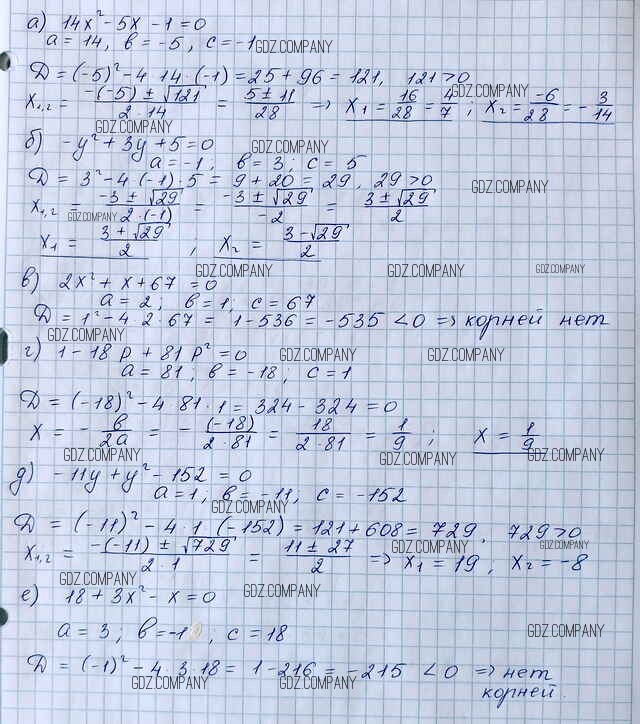 а) 14x² - 5x - 1 = 0
a = 14, в = -5, c = -1 GDZ.COMPANY
D = (-5)² - 4·14·(-1) = 25 + 96 = 121, 121 > 0
x₁,₂ = (-(-5) ± √121)/(2·14) = (5 ± 11)/28 => x₁ = 16/28 = 4/7; x₂ = -6/28 = -3/14
GDZ.COMPANY
GDZ.COMPANY
б) -y² + 3y + 5 = 0
GDZ.COMPANY
a = -1, в = 3; c = 5
D = 3² - 4·(-1)·5 = 9 + 20 = 29, 29 > 0
GDZ.COMPANY
x₁,₂ = (-3 ± √29)/(2·(-1)) = (-3 ± √29)/(-2) = (3 ± √29)/2
GDZ.COMPANY
x₁ = (3 + √29)/2, x₂ = (3 - √29)/2
GDZ.COMPANY GDZ.COMPANY GDZ.COMPANY
в) 2x² + x + 67 = 0
a = 2; в = 1; c = 67
D = 1² - 4·2·67 = 1 - 536 = -535 < 0 => корней нет
GDZ.COMPANY
г) 1 - 18p + 81p² = 0
GDZ.COMPANY GDZ.COMPANY
a = 81; в = -18; c = 1
D = (-18)² - 4·81·1 = 324 - 324 = 0
x = -в/2a = -(-18)/(2·81) = 18/(2·81) = 1/9; x = 1/9
GDZ.COMPANY GDZ.COMPANY GDZ.COMPANY
д) -11y + y² - 152 = 0
a = 1, в = -11, c = -152
GDZ.COMPANY
D = (-11)² - 4·1·(-152) = 121 + 608 = 729, 729 > 0
GDZ.COMPANY GDZ.COMPANY
x₁,₂ = (-(-11) ± √729)/(2·1) = (11 ± 27)/2 => x₁ = 19, x₂ = -8
GDZ.COMPANY GDZ.COMPANY
е) 18 + 3x² - x = 0
a = 3; в = -1, c = 18
GDZ.COMPANY
D = (-1)² - 4·3·18 = 1 - 216 = -215 < 0 => нет
GDZ.COMPANY GDZ.COMPANY
корней.